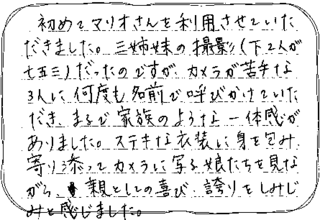 初めてマリオさんを利用させていた
だきました。三姉妹の撮影(下2人が
七五三)だったのですが、カメラが苦手な
3人に何度も名前で呼びかけていた
だき、まるで家族のような一体感が
ありました。ステキな衣装に身を包み
寄り添ってカメラに写る娘たちを見な
がら、親としての喜び、誇りをしみじ
みと感じました。